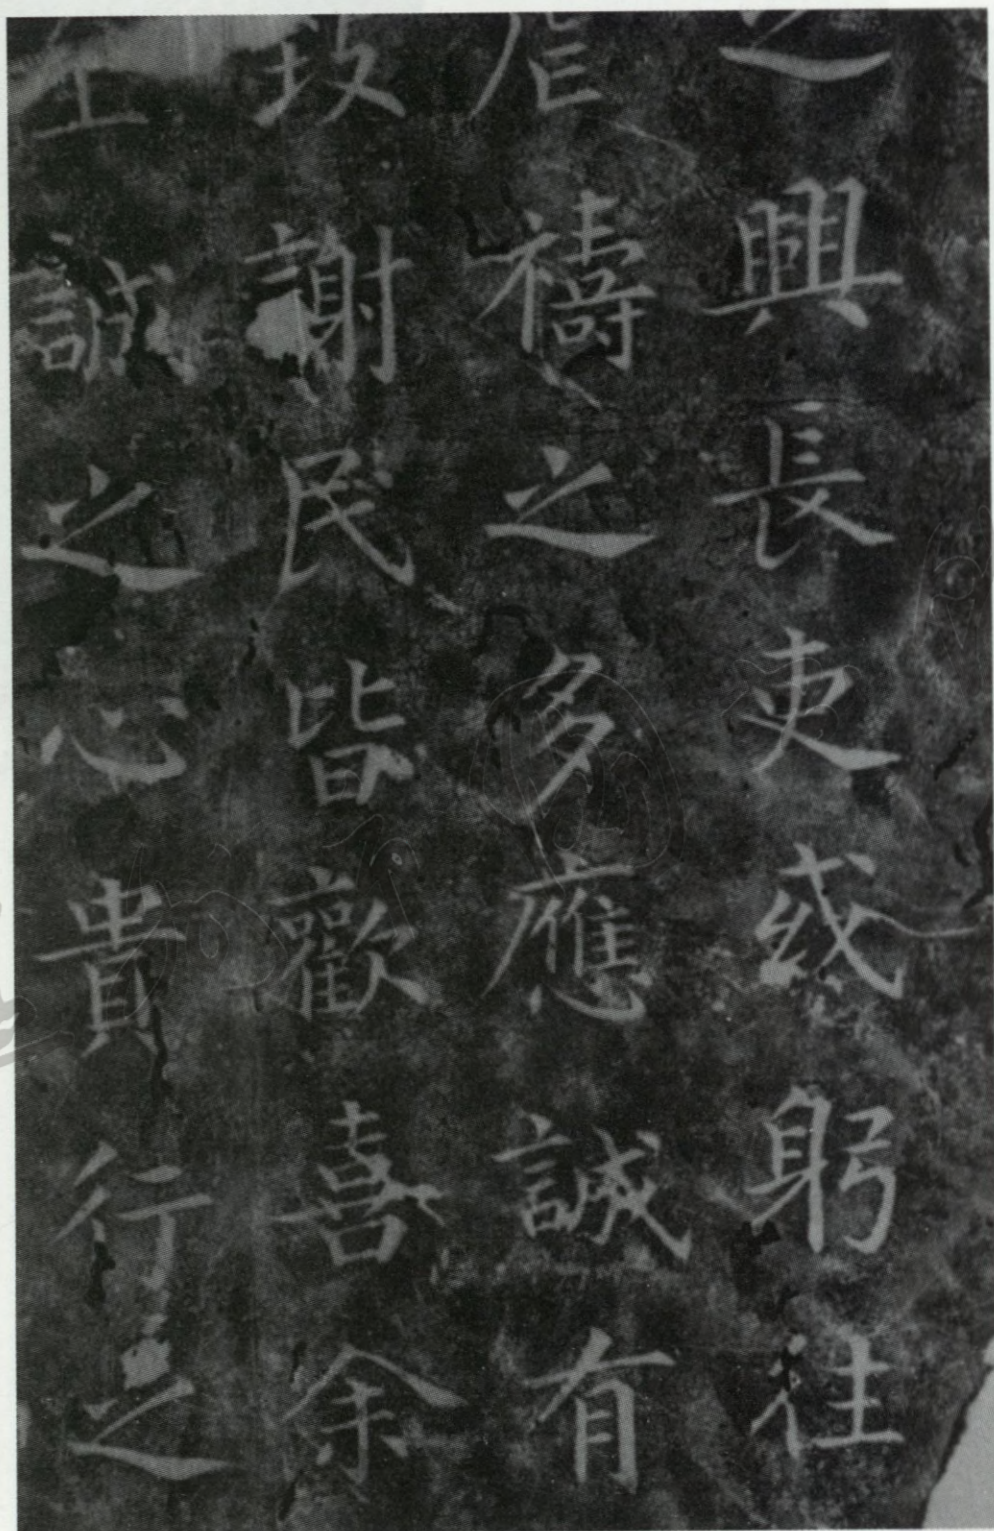 之興長吏或躬往
禱之多應誠有
致謝民皆歡喜余
至誠之心貴行之